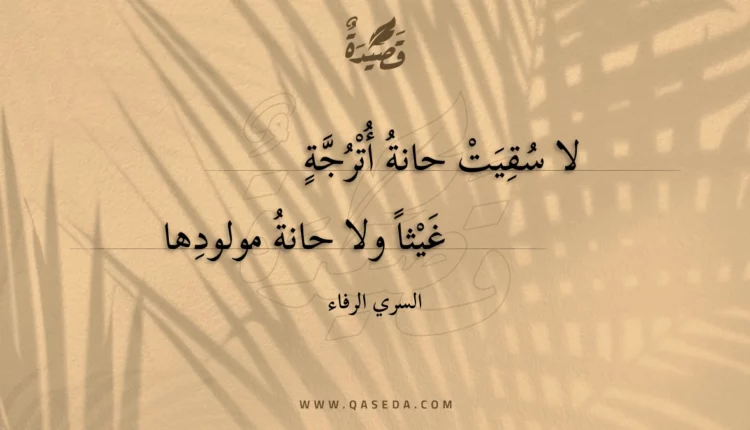 قَصِيْدَةٌ
لا سُقِيَتْ حانةُ أُتْرُجَّةٍ
غَيْثاً ولا حانةُ مولودِها
السري الرفاء
WWW.QASEDA.COM